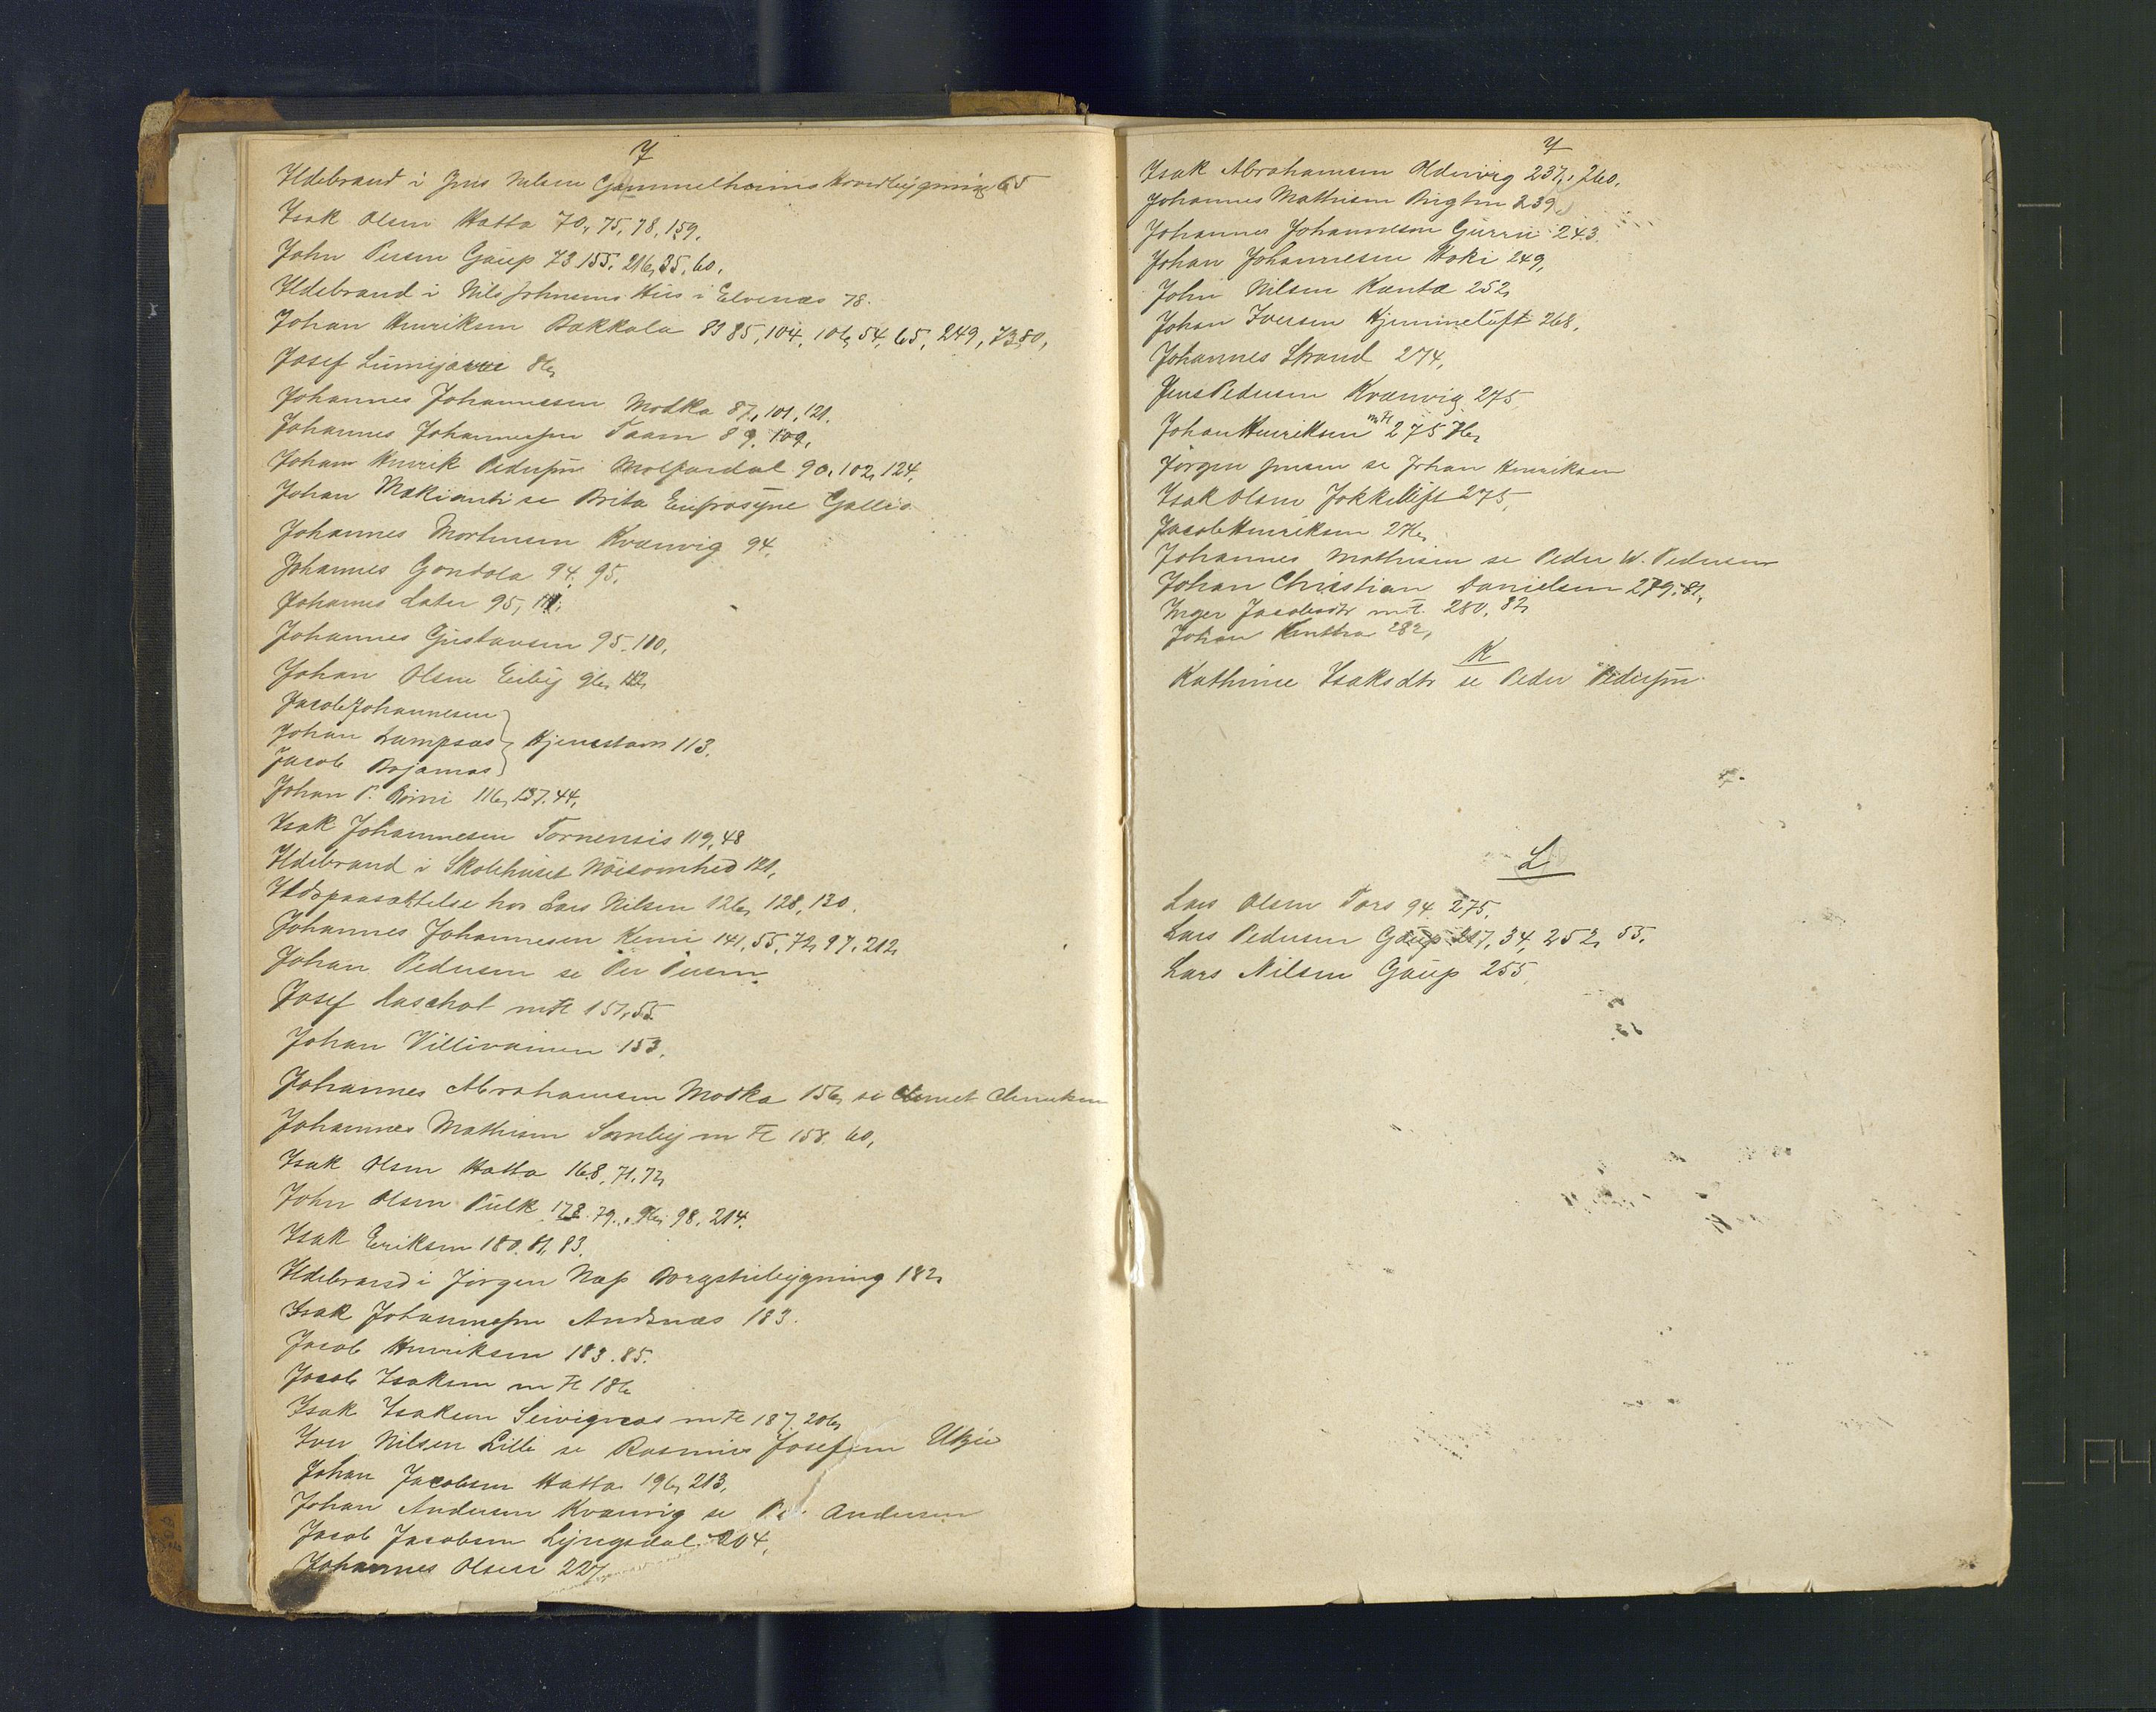 I
Ildebrand i Jens Nilsen Gammelheims Hovedbygning 65
Isak Olsen Hatta 70, 75, 78, 159,
John Persen Gaup 73 155, 216, 35, 60,
Ildebrand i Nils Johnsens Hus i Elvenæs 78.
Johan Henriksen Bakkala 83 85, 104, 106, 54, 65, 249, 73, 80,
Josef Lumijarvi 86,
Johannes Johannessen Modka 87, 101, 121.
Johannes Johannessen Taam 89, 109,
Johan Henrik Pedersen 90, 102, 124,
Johan Makianti se Brita Eufrosyne Gallis
Johannes Mortensen Kvænvig 94,
Johannes Gondola 94, 95,
Johannes 95,
Johannes Gustavsen 95, 100,
Johan Olsen Eiby 96,
Jacob Johannesen
Johan Lampsas Kjenestam 113.
Jacob Bojamas
Johan P. 116, 137, 44,
Isak Johannesen Tornensis 119, 48
Ildebrand i Skolehuset Nöisomhed 121,
Ildspaasættelse hos Lars Nilsen 126, 128, 130.
Johannes Johannesen Kemi 141, 55, 72, 97, 212,
Johan Pedersen se Per Persen
Josef mfl 151, 55
Johan Villivainen 153,
Johannes Abrahamsen Modka 156, se Clemet Clemetsen
Johannes Mathisen mfl 158, 60,
Isak Olsen Hatta 168, 71, 72,
John Olsen Pulk 178, 79, 96, 98, 214,
Isak Eriksen 180, 81, 83,
Ildebrand i Jörgen Næss Borgstubygning 182,
Isak Johannessen Andsnæs 183.
Jacob Henriksen 183, 85.
Jacob Isaksen mfl 186
Isak Isaksen mfl 187, 206,
Iver Nilsen Lille se Rasmus Josefsen Utzie
Johan Jacobsen Hatta 196, 213,
Johan Andersen Kvænvig se Andersen
Jacob Jacobsen Lyngsdal 204,
Johannes Olsen 227
I
Isak Abrahamsen Oldervig 237, 260,
Johannes Mathisen 239,
Johannes Johannesen 243.
Johan Johannesen Hoki 249,
John Nilsen Kanta 252,
Johan Iversen Kjemmeluft 268,
Johannes Strand 274,
Jens Pedersen Kvænvig 275
Johan Henriksen mfl 275 76,
Jörgen Jensen se Johan Henriksen
Isak Olsen Jokkeluft 275,
Jacob Henriksen 276,
Johannes Mathisen se Peder W. Pedersen
Johan Christian Danielsen 279, 81,
Inger Jacobsdtr mfl. 280, 82,
Johan 282,
K
Kathrine Isaksdtr se Peder Pedersen
L
Lars Olsen Tors 94, 275,
Lars Pedersen Gaup 217, 34, 252, 55,
Lars Nilsen Gaup 255,